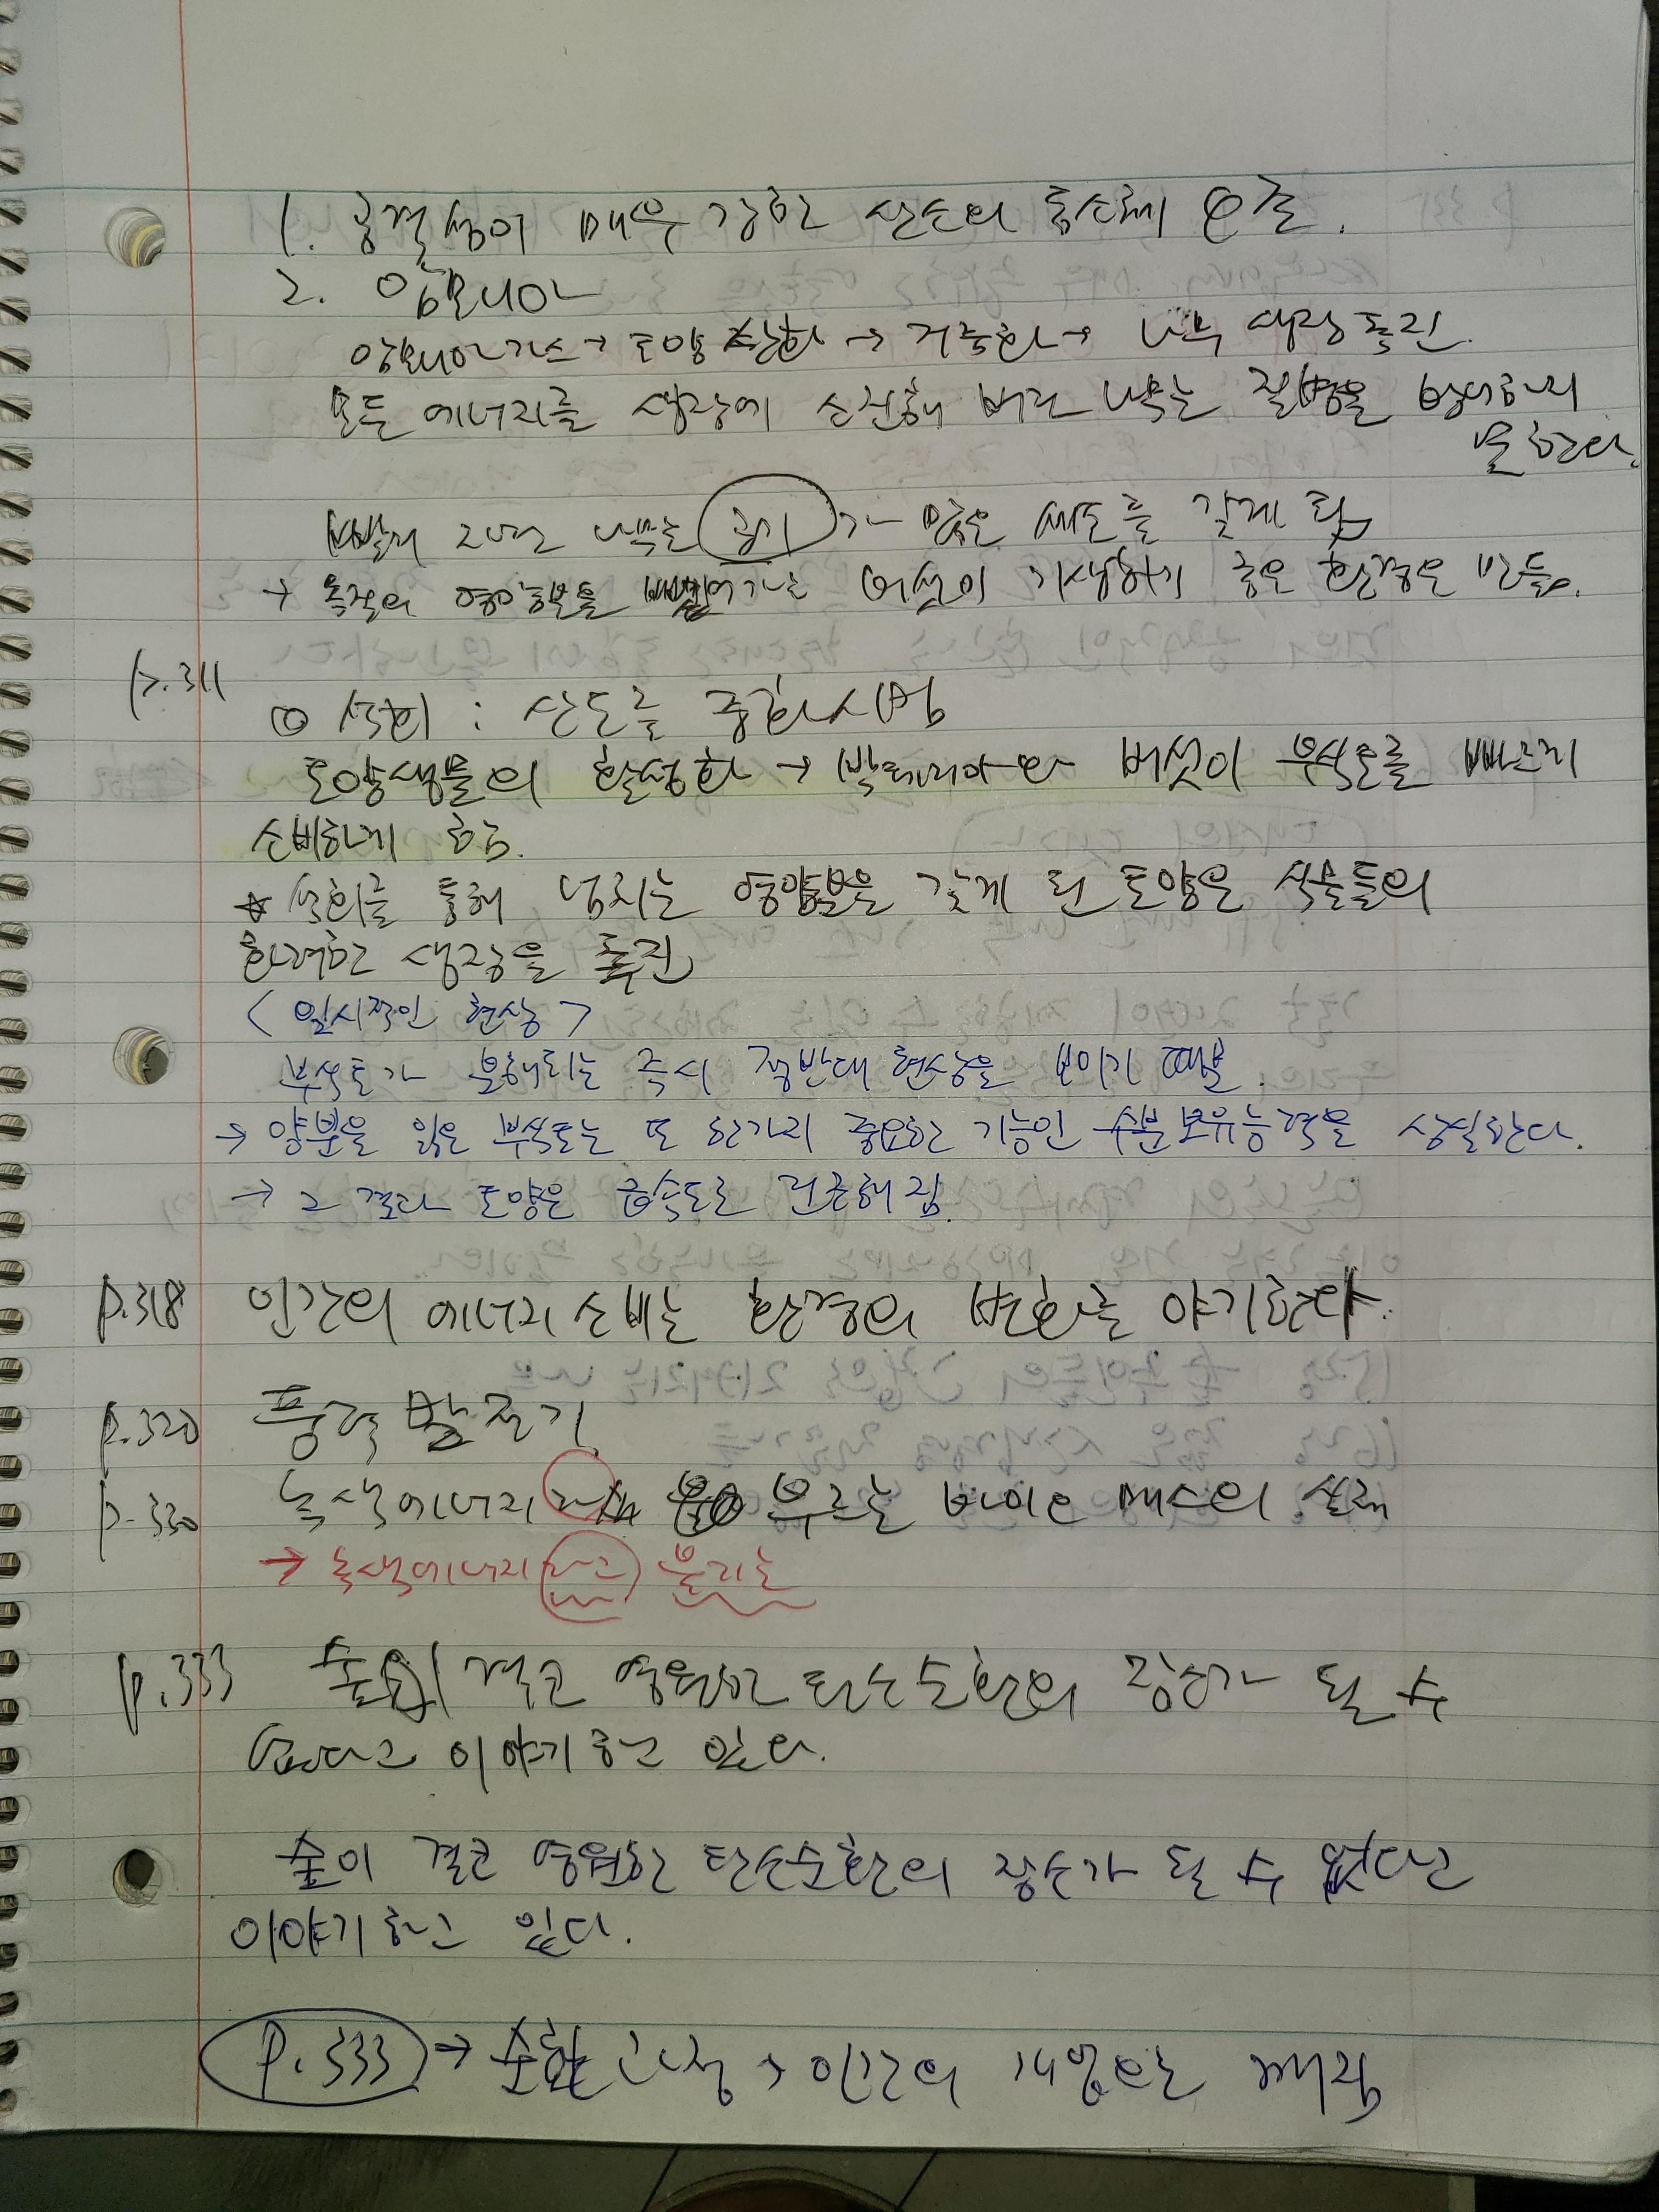 1. 공격성이 매우 강한 산소의 동소체 오존.
2. 암모니아
암모니아가스 → 토양 산화 → 거름화 → 나무 성장 촉진.
모든 에너지를 생장에 소진해 버린 나무는 질병을 방어하지
못한다.
빨리 크면 나무는 공기가 많은 세포를 갖게 됨
→ 목질의 영양분을 뺏어가는 버섯이 기생하기 좋은 환경을 만듦.
p.311
◎ 석회 : 산도를 중화시킴
토양생물의 활성화 → 박테리아와 버섯이 부식토를 빠르게
소비하게 함.
☆ 석회를 통해 넘치는 영양분을 갖게 된 토양은 식물들의
화려한 생장을 촉진
< 일시적인 현상 >
부식토가 분해되는 즉시 정반대 현상을 보이기 때문.
→ 양분을 잃은 부식토는 또 한가지 중요한 기능인 수분보유능력을 상실한다.
→ 그 결과 토양은 급속도로 건조해짐.
p.318 인간의 에너지 소비는 환경의 변화를 야기한다.
p.320 풍력 발전기
p.330 녹색에너지 부르는 바이오 매스의 실태
→ 녹색에너지라고 불리는
p.333 숲이 결코 영원한 탄소순환의 장소가 될 수
없다고 이야기하고 있다.
숲이 결코 영원한 탄소순환의 장소가 될 수 없다고
이야기하고 있다.
p.333 → 순환과정 → 인간의 개입으로 깨짐